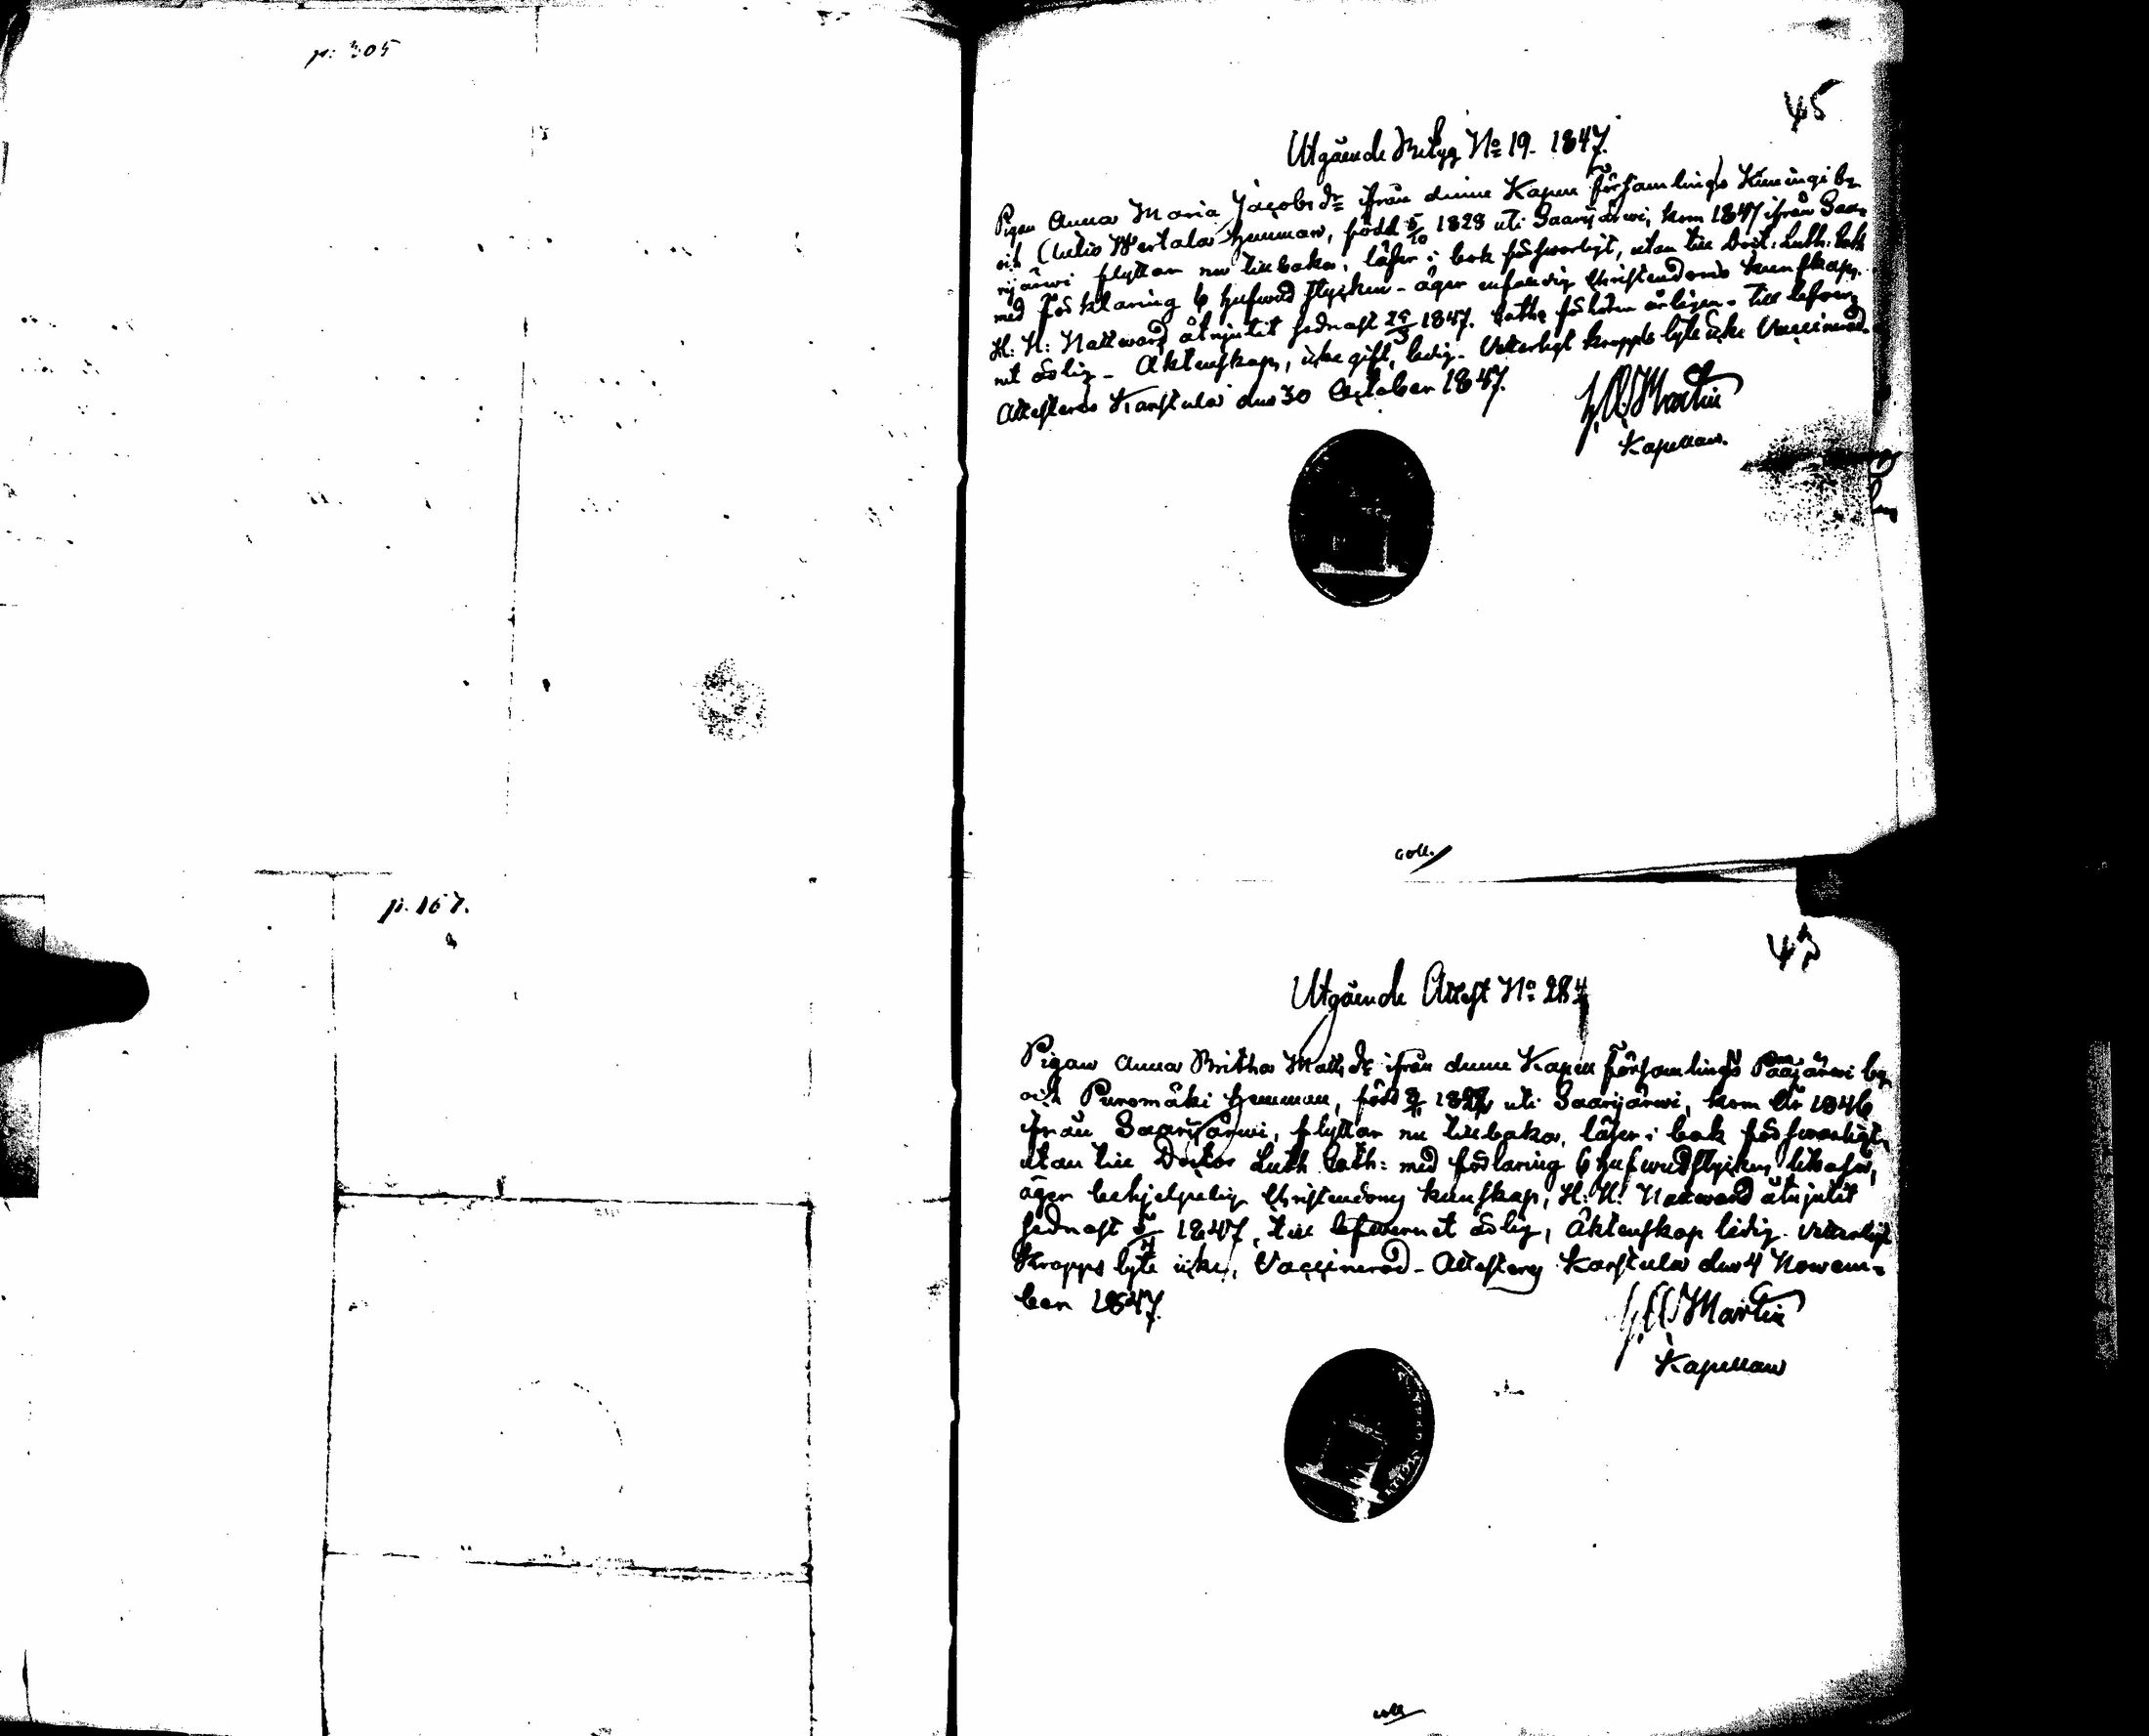 p. 305
45
Utgående Betyg No 19. 1847.
Pigan Anna Maria Jacobsdr ifrån denne Kapell Församlings Kimingi by
och Wertala hemman, född 5/10 1828 uti Saarijärwi, kom 1847 ifrån Saa-
rijärwi flyttar nu tillbaka, läser i bok försvarligt, utan till Doct: Luth: Cath
med förklaring 6 hufvud stycken - äger enfaldig Christendoms kunskap.
H: H: Nattward åtnjutit sednast 1847. Cathe förhören årligen. Till lefwer-
net ärlig - Äktenskap, icke gift, ledig. Veterligt kropps lyte icke Vaccinerad.
Attesteras Karstula den 30 October 1847.
Martin
Kapellan.
coll.
p. 167.
43
Utgående Attest No 28
Pigan Anna Britha Mattsdr ifrån denne Kapell Församlings Pääjärwi by
och Puromäki hemman, född uti Saarijärwi, kom år 1846
ifrån Saarijärwi, flyttar nu tillbaka, läser i bok försvarligt,
utan till Doctor Luth Cath: med förklaring 6 hufwudstycken,
äger behjelpelig Christendoms kunskap, H: H: Nattward åtnjutit
sednast 1847, till lefwernet ärlig, Äktenskap ledig. Veterligt
Kropps lyte icke, Vaccinerad - Attesteras Karstula den 4 Novem-
ber 1847.
Martin
Kapellan
coll